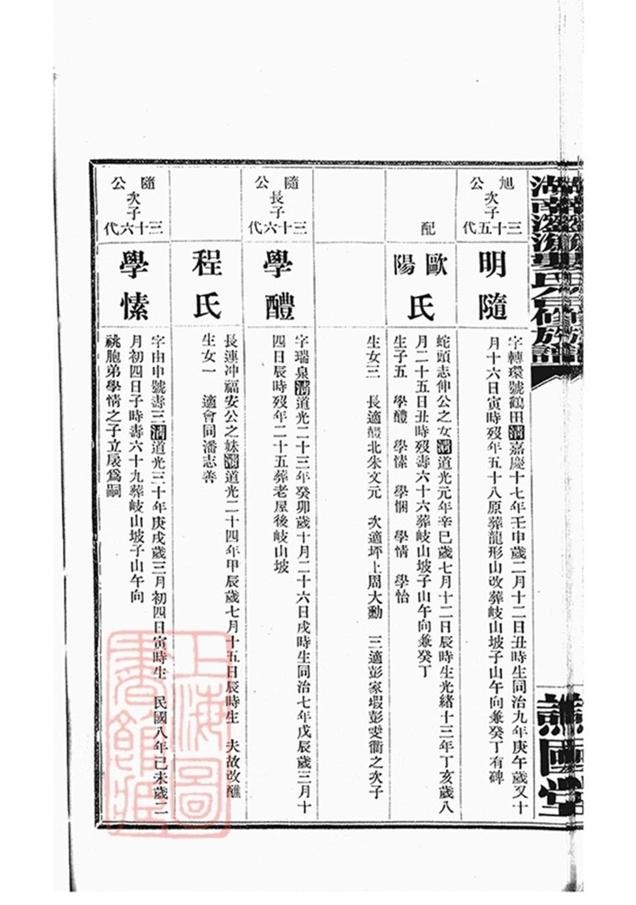 譙國堂
旭公次子
三十五代
明隨
字轉環號鶴田清嘉慶十七年壬申歲二月十二日丑時生同治九年庚午歲又十
月十六日寅時歿年五十八原葬龍形山改葬岐山坡子山午向兼癸丁有碑
配
歐陽氏
蛇頭志伸公之女清道光元年辛巳歲七月十二日辰時生光緒十三年丁亥歲八
月二十五日丑時歿壽六十六葬岐山坡子山午向兼癸丁
生子五 學醴 學愫 學悃 學情 學怡
生女三 長適醴北朱文元 次適坪上周大勳 三適彭家塅彭雯衢之次子
隨公長子
三十六代
學醴
字瑞泉清道光二十三年癸卯歲十月二十六日戌時生同治七年戊辰歲三月十
四日辰時歿年二十五葬老屋後岐山坡
程氏
長連冲福安公之妹清道光二十四年甲辰歲七月十五日辰時生 夫故改醮
生女一 適會同潘志善
隨公次子
三十六代
學愫
字由申號壽三清道光三十年庚戌歲三月初四日寅時生 民國八年己未歲二
月初四日子時壽六十九葬岐山坡子山午向
祧胞弟學情之子立扆爲嗣
上海圖書館藏